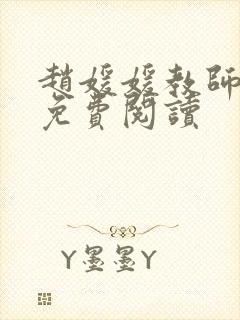 趙媛媛教師
免費閱讀
Y墨墨Y